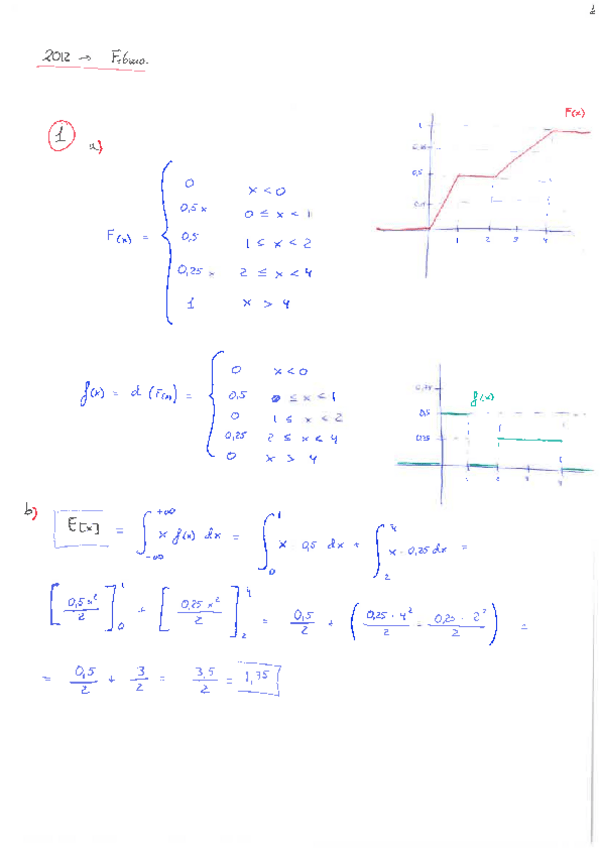 2012 →
1 a)
F(x)
F(x) =
0 x < 0
0,5x 0 ≤ x < 1
0,5 1 ≤ x < 2
0,25x 2 ≤ x < 4
1 x > 4
1
0,5
1 2 3 4
f(x) = d (F(x)) =
0 x < 0
0,5 0 ≤ x < 1
0 1 ≤ x < 2
0,25 2 ≤ x < 4
0 x > 4
f(x)
0,5
b) E[x] = ∫_{-∞}^{+∞} x f(x) dx = ∫_0^1 x 0,5 dx + ∫_2^4 x · 0,25 dx =
[0,5x²/2]_0^1 + [0,25x²/2]_2^4 = 0,5/2 + (0,25 · 4²/2 - 0,25 · 2²/2) =
= 0,5/2 + 3/2 = 3,5/2 = 1,75